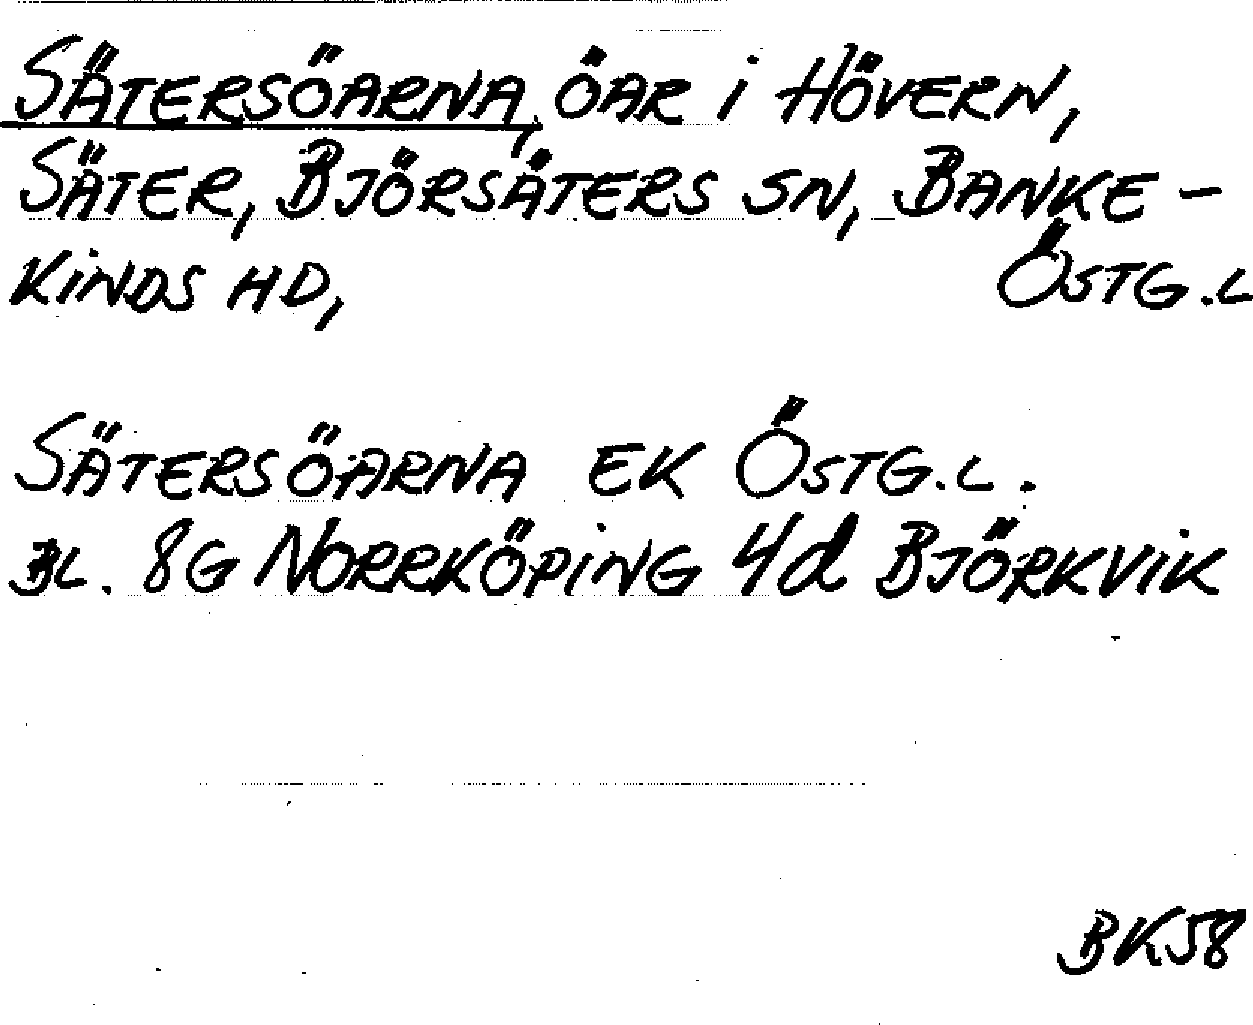 SÄTERSÖARNA, ÖAR i HÖVERN,
SÄTER, BJÖRSÄTERS SN, BANKE-
KINDS HD, ÖSTG.L
SÄTERSÖARNA EK ÖSTG.L.
BL. 8G NORRKÖPING 4d BJÖRKVIK
BK58